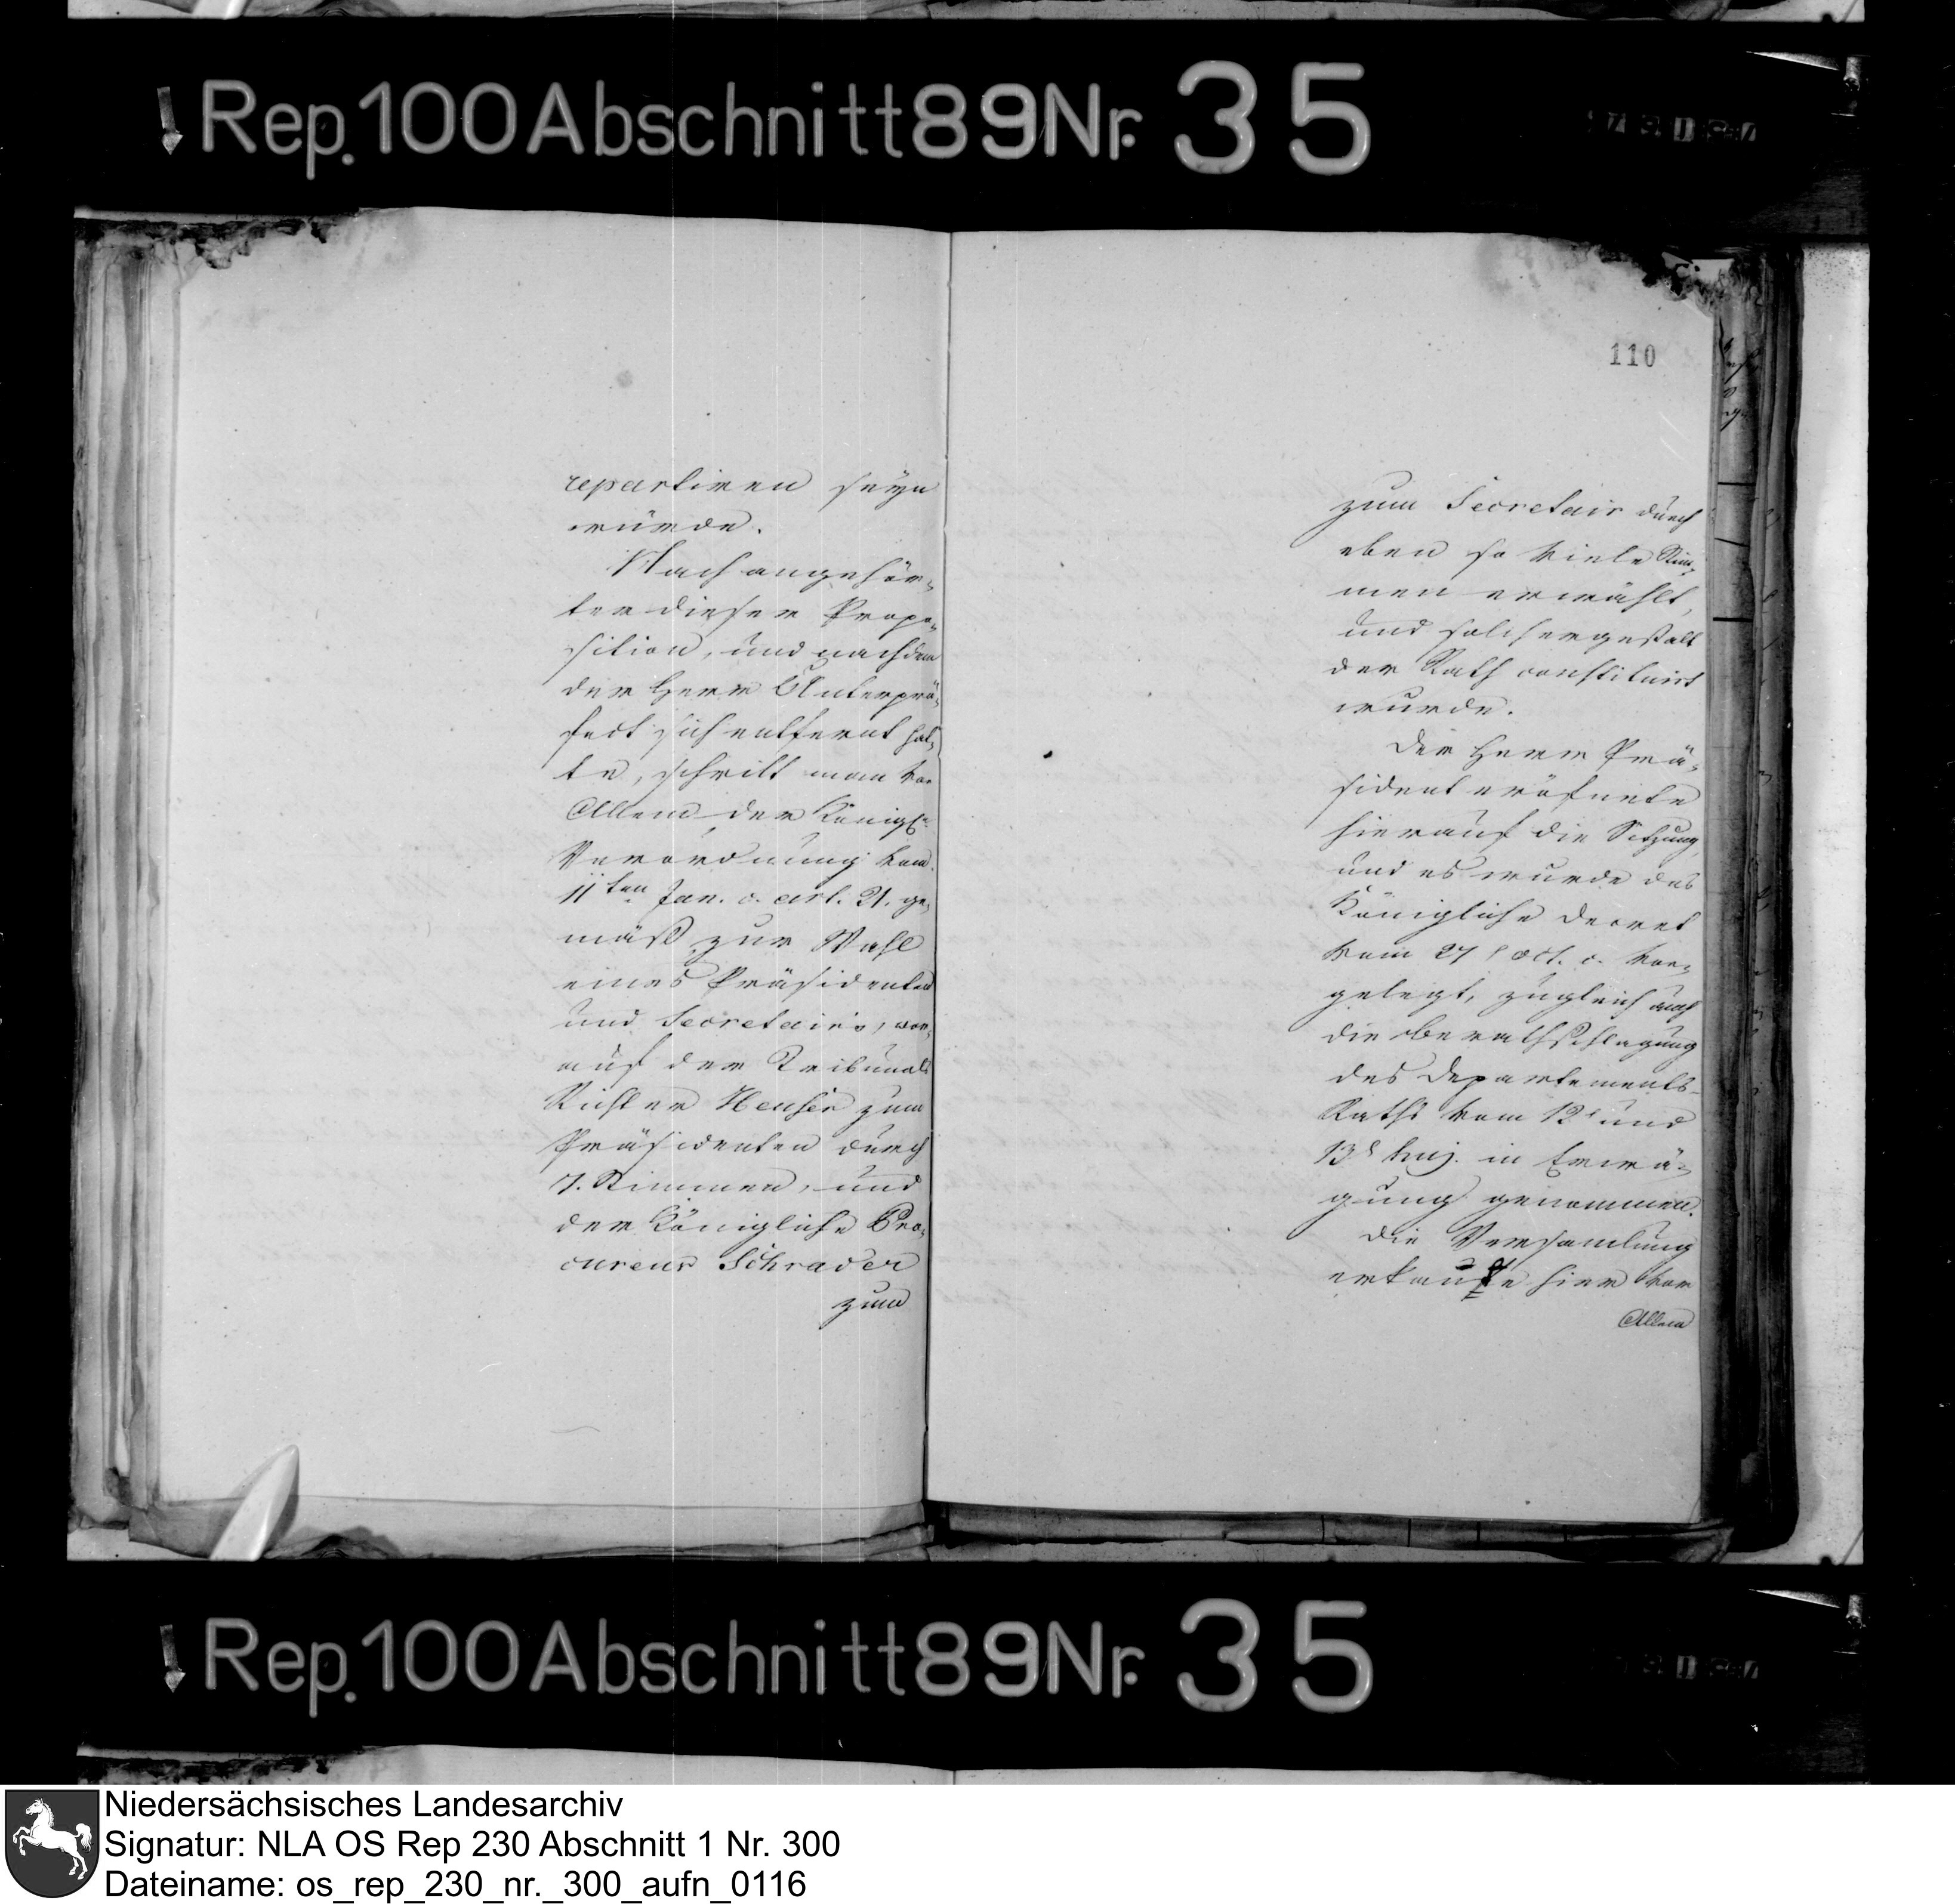 Rep. 100 Abschnitt 89 Nr. 35
repartiren seyn
würde.
Nach angehör-
ter dieser Propo-
sition, und nachdem
der Herr Unterprä-
fect sich entfernt hat-
te, schritt man vor
Allem der Königl.
Verordnung vom
11ten Jan. c. art. 21. ge-
mäß zur Wahl
eines Präsidenten
und Secretairs, wor-
auf der Tribunals
Richter Heusin zum
Präsidenten durch
7. Stimmen, und
der Königliche Pro-
cureur Schrader
zum
110
zum Secretair durch
eben so viele Stim-
men erwählt,
und solchergestalt
der Rath constituirt
wurde.
Der Herr Prä-
sident eröfnete
hierauf die Sitzung,
und es wurde das
Königliche Decret
vom 27 t Oct. c. vor-
gelegt, zugleich auch
die Berathschlagung
des Departements-
Raths vom 12t und
13t huj. in Erwä-
gung genommen.
Die Versamlung
erkannte hier vor
Allem
Rep. 100 Abschnitt 89 Nr. 35
Niedersächsisches Landesarchiv
Signatur: NLA OS Rep 230 Abschnitt 1 Nr. 300
Dateiname: os_rep_230_nr._300_aufn_0116